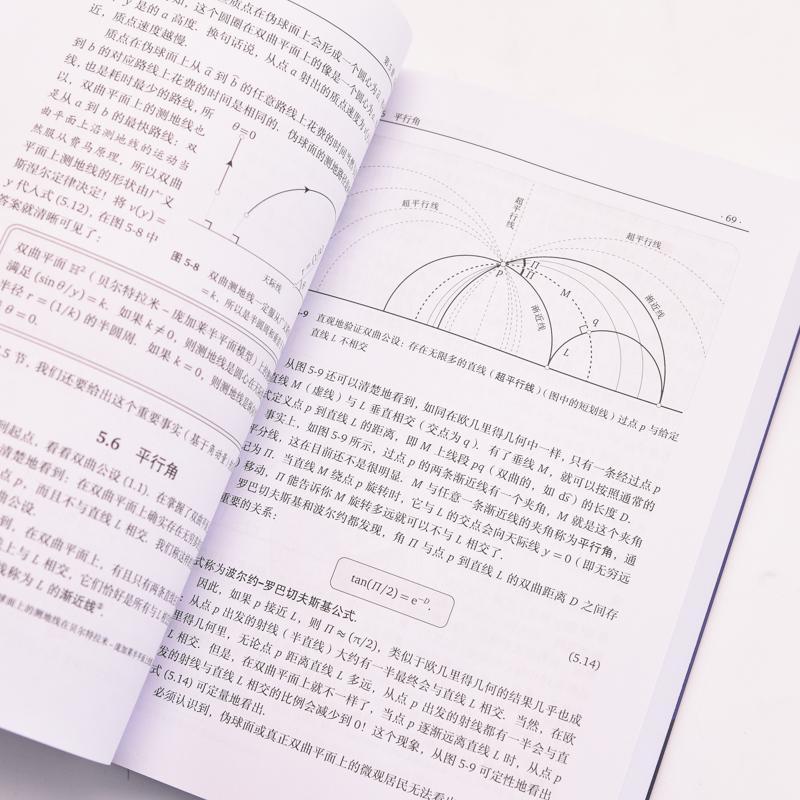 质点在伪球面上会形成一个圆心为
如,这个圆圈在双曲平面上的像是一个圆心为
y 是的 a 高度. 换句话说,从点 a 射出的质点速度为
近,质点速度越慢.
质点在伪球面上从 ã 到 b̃ 的任意路线上花费的时间
到 b 的对应路线上花费的时间是相同的. 伪球面的测地
线,也是耗时最少的路线,所
以,双曲平面上的测地线也
是从 a 到 b 的最快路线:双
曲平面上沿测地线的运动当
然服从费马原理,所以双曲
平面上测地线的形状由广义
斯涅尔定律决定!将 v(y) =
y 代入式 (5.12),在图 5-8 中
答案就清晰可见了:
θ=0
天际线
图 5-8 双曲测地线一定服从
= k,所以是半圆周和垂
双曲平面 ℍ² (贝尔特拉米–庞加莱半平面模型)
满足 (sin θ/y) = k. 如果 k ≠ 0,则测地线是圆心在
半径 r = (1/k) 的半圆周. 如果 k = 0,则测地线是
θ = 0.
.5 节,我们还要给出这个重要事实 (基于角动量
5.6 平行角
到起点,看看双曲公设 (1.1). 在掌握了双曲
清楚地看到:在双曲平面上确实存在无穷多
点 p,而且不与直线 L 相交. 我们称这
曲公设.
到,在双曲平面上,有且只有两条直
上与 L 相交,它们恰好是所有与 L 相
线称为 L 的渐近线
平行角
· 69 ·
超平行线
超平行线
超平行线
p
Π
Π
M
q
渐近线
渐近线
L
-9 直观地验证双曲公设:存在无限多的直线 (超平行线) (图中的短划线) 过点 p 与给定
直线 L 不相交
从图 5-9 还可以清楚地看到,如同在欧几里得几何中一样,只有一条经过点 p
直线 M (虚线) 与 L 垂直相交 (交点为 q). 有了垂线 M,就可以按照通常的
式定义点 p 到直线 L 的距离,即 M 上线段 pq (双曲的,如 ds̃) 的长度 D.
事实上,如图 5-9 所示,过点 p 的两条渐近线有一个夹角,M 就是这个夹角
平分线,这在目前还不是很明显. M 与任意一条渐近线的夹角称为平行角,通
记为 Π. 当直线 M 绕点 p 旋转时,它与 L 的交点会向天际线 y = 0 (即无穷远
移动,Π 能告诉你 M 旋转多远就可以不与 L 相交了.
罗巴切夫斯基和波尔约都发现,角 Π 与点 p 到直线 L 的双曲距离 D 之间存
重要的关系:
tan(Π/2) = e⁻ᴰ.
(5.14)
式称为波尔约–罗巴切夫斯基公式.
因此,如果 p 接近 L,则 Π ≈ (π/2),类似于欧几里得几何的结果几乎也成
:从点 p 出发的射线 (半直线) 大约有一半最终会与直线 L 相交. 当然,在欧
里得几何里,无论点 p 距离直线 L 多远,从点 p 出发的射线都有一半会与直
L 相交. 但是,在双曲平面上就不一样了,当点 p 逐渐远离直线 L 时,从点 p
发的射线与直线 L 相交的比例会减少到 0!这个现象,从图 5-9 可定性地看出
式 (5.14) 可定量地看出.
必须认识到,伪球面或真正双曲平面上的微观居民无法看